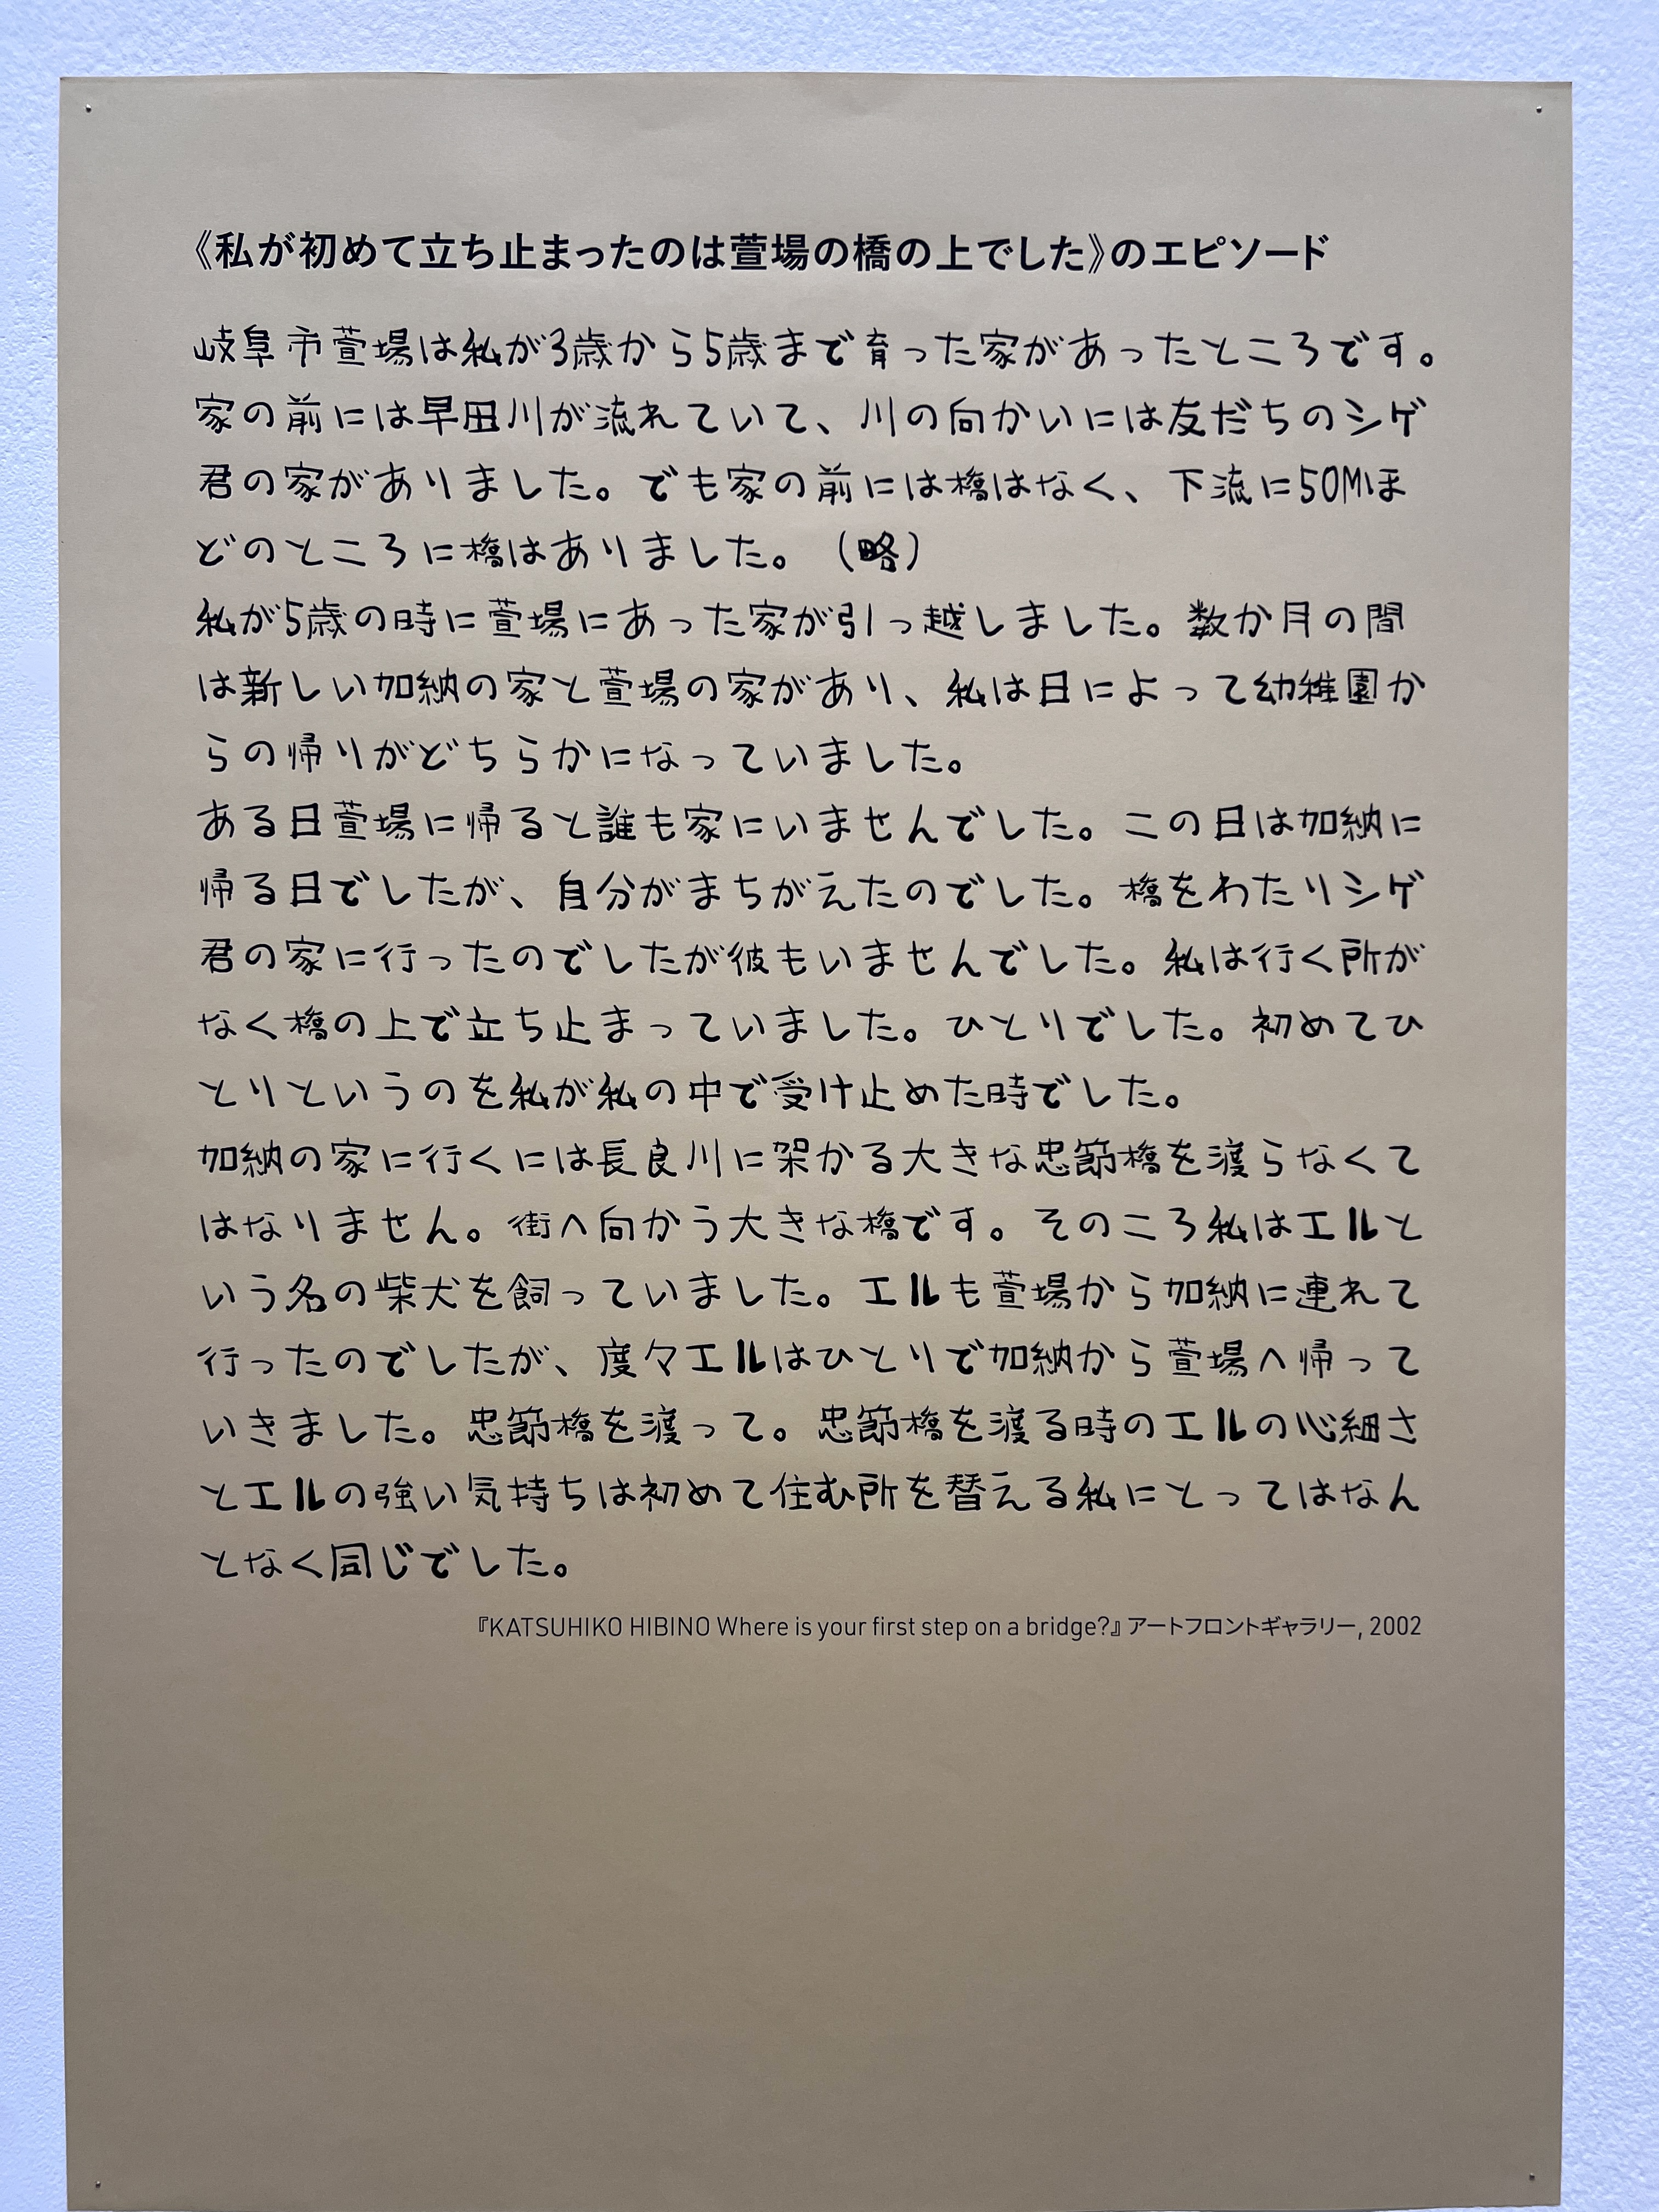 《私が初めて立ち止まったのは萱場の橋の上でした》のエピソード
岐阜市萱場は私が3歳から5歳まで育った家があったところです。
家の前には早田川が流れていて、川の向かいには友だちのシゲ
君の家がありました。でも家の前には橋はなく、下流に50Mほ
どのところに橋はありました。（略）
私が5歳の時に萱場にあった家が引っ越しました。数か月の間
は新しい加納の家と萱場の家があり、私は日によって幼稚園か
らの帰りがどちらかになっていました。
ある日萱場に帰ると誰も家にいませんでした。この日は加納に
帰る日でしたが、自分がまちがえたのでした。橋をわたりシゲ
君の家に行ったのでしたが彼もいませんでした。私は行く所が
なく橋の上で立ち止まっていました。ひとりでした。初めてひ
とりというのを私が私の中で受け止めた時でした。
加納の家に行くには長良川に架かる大きな忠節橋を渡らなくて
はなりません。街へ向かう大きな橋です。そのころ私はエルと
いう名の柴犬を飼っていました。エルも萱場から加納に連れて
行ったのでしたが、度々エルはひとりで加納から萱場へ帰って
いきました。忠節橋を渡って。忠節橋を渡る時のエルの心細さ
とエルの強い気持ちは初めて住む所を替える私にとってはなん
となく同じでした。
『KATSUHIKO HIBINO Where is your first step on a bridge?』アートフロントギャラリー, 2002